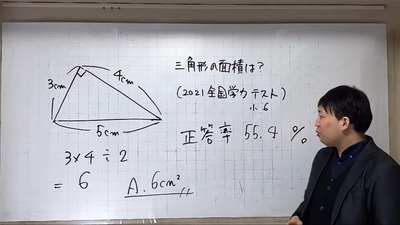 三角形の面積は？
3cm
4cm
5cm
(2021全国学力テスト)
小6
正答率 55.4 %
3×4÷2
= 6
A. 6cm²